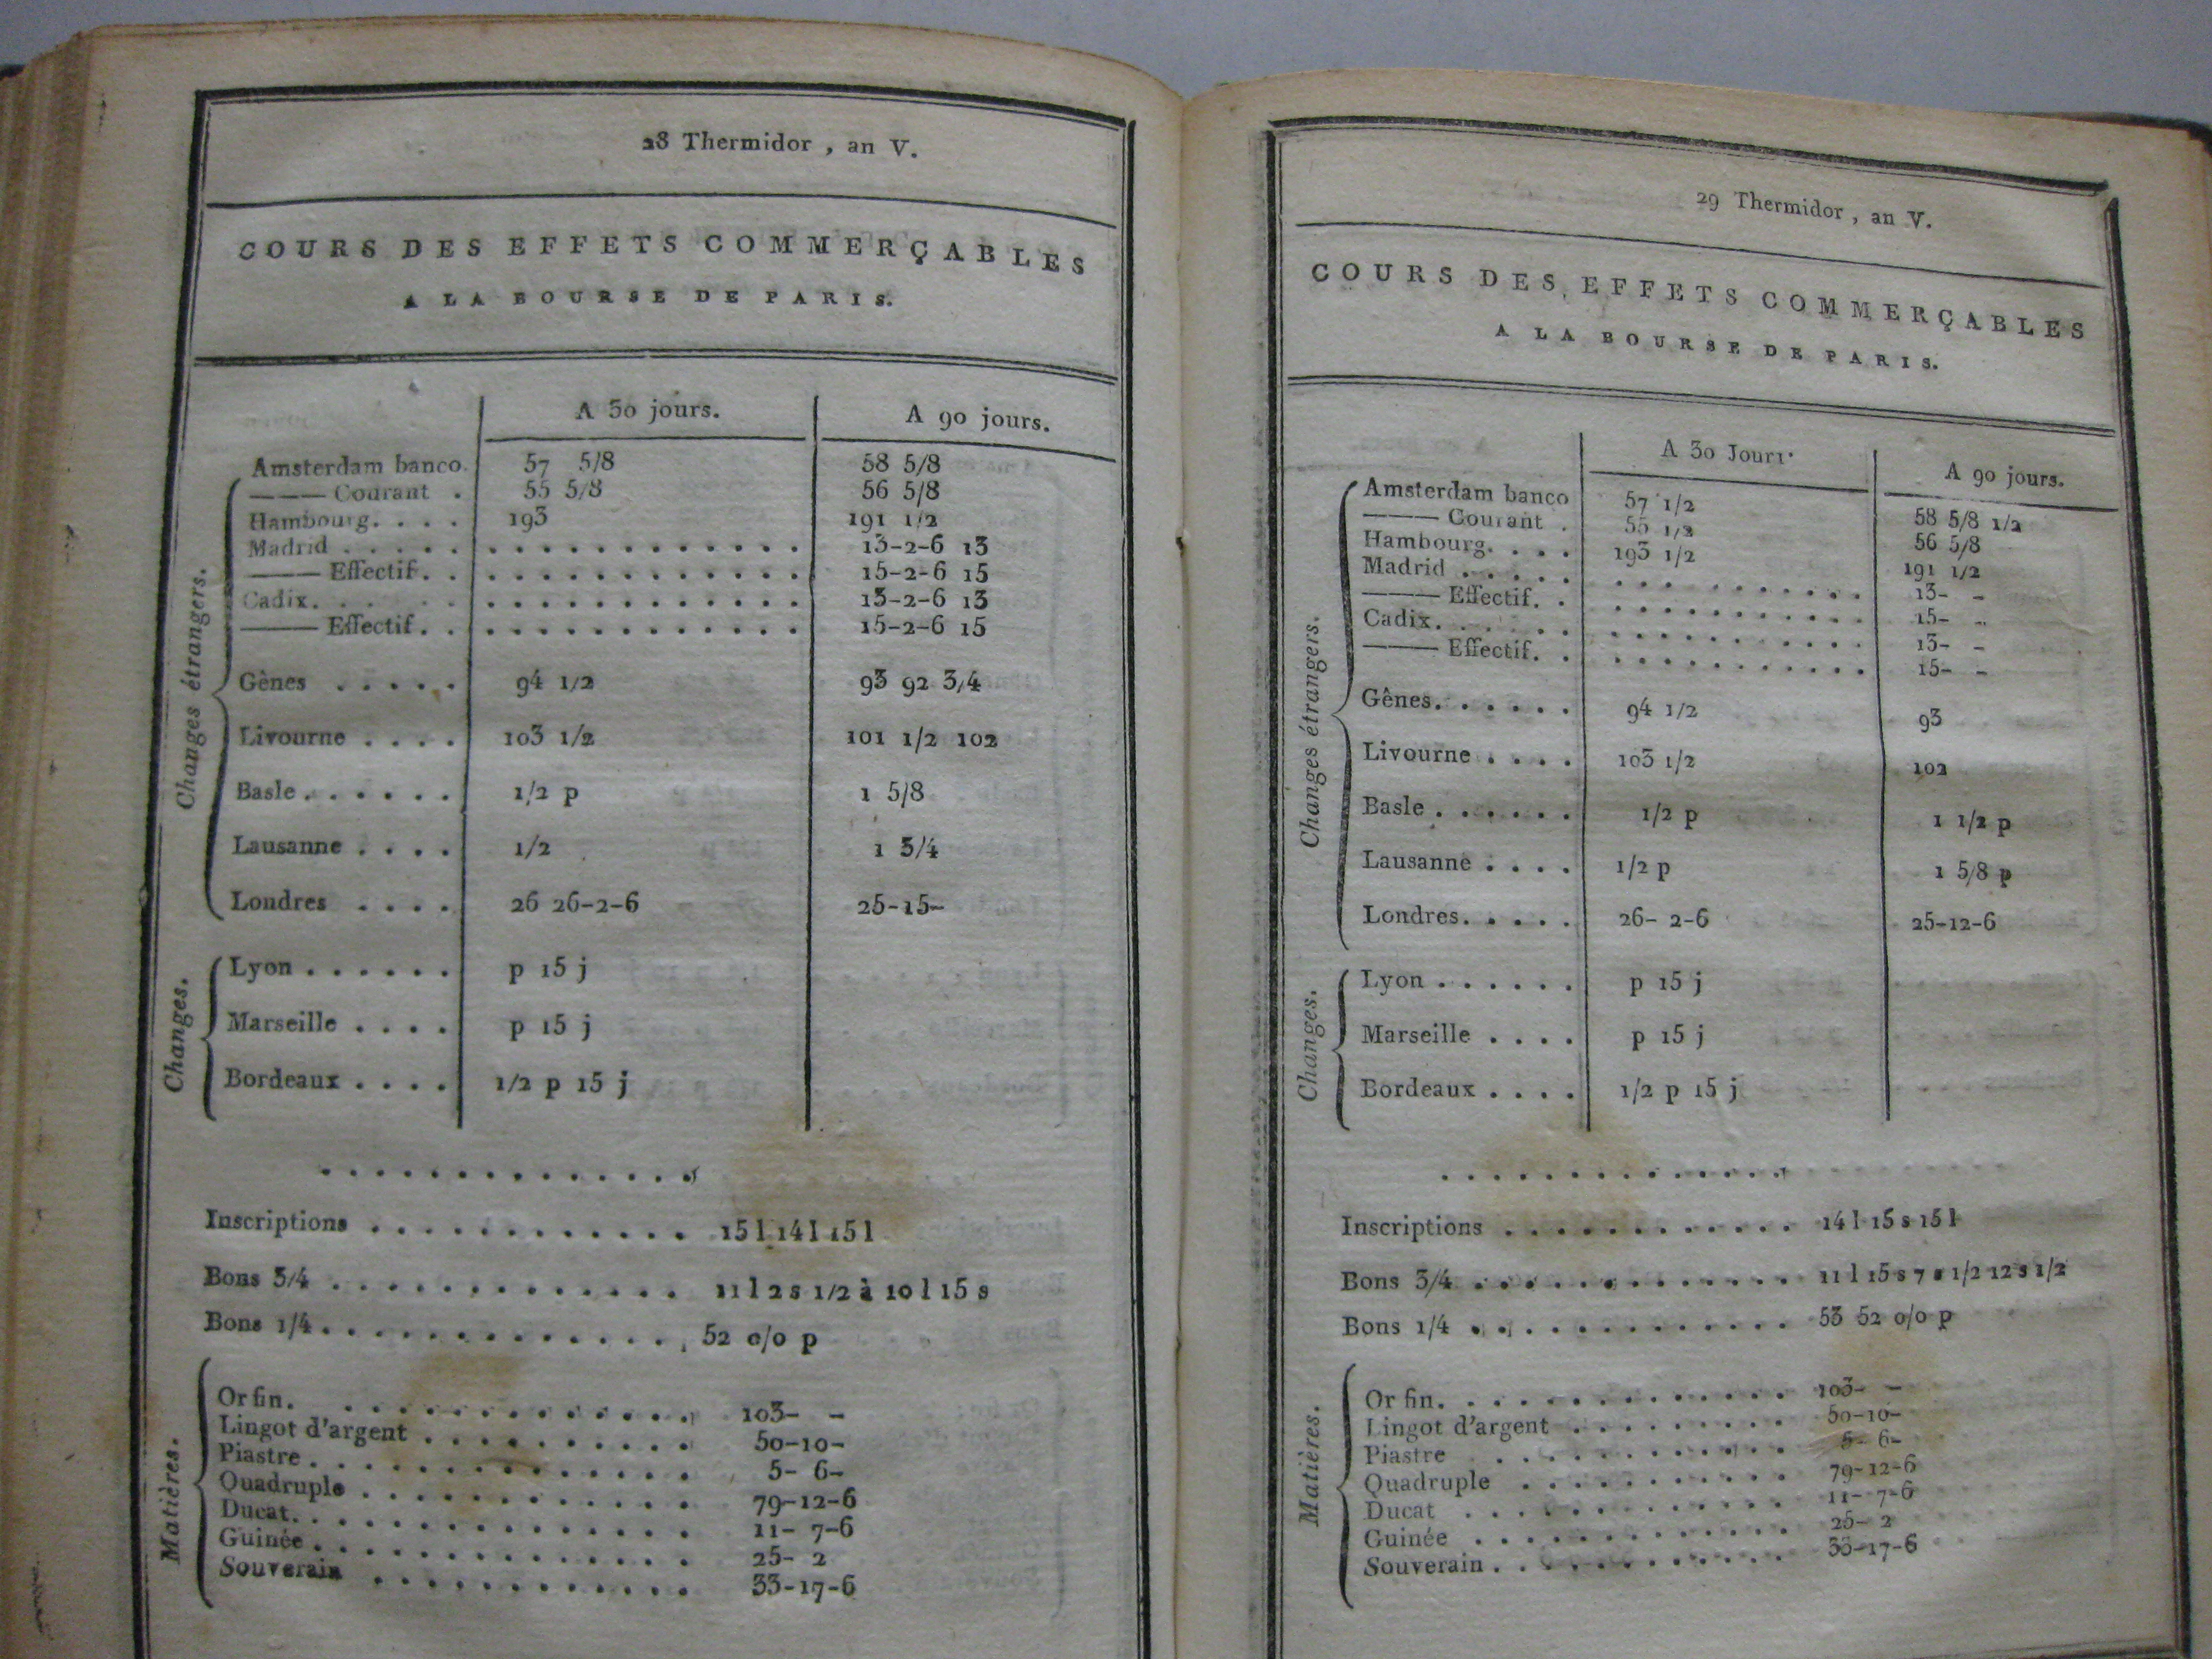 28 Thermidor , an V.
COURS DES EFFETS COMMERÇABLES
A LA BOURSE DE PARIS.
A 30 jours. A 90 jours.
Changes étrangers.
Amsterdam banco. 57 5/8 58 5/8
——— Courant . 55 5/8 56 5/8
Hambourg. . . . 193 191 1/2
Madrid . . . . . . . . . . . . . . . . . 13-2-6 13
——— Effectif. . . . . . . . . . . . . . 15-2-6 15
Cadix. . . . . . . . . . . . . . . . . . 13-2-6 13
——— Effectif. . . . . . . . . . . . . . 15-2-6 15
Gênes . . . . . 94 1/2 93 92 3/4
Livourne . . . . 103 1/2 101 1/2 102
Basle . . . . . . 1/2 p 1 5/8
Lausanne . . . . 1/2 1 3/4
Londres . . . . 26 26-2-6 25-15-
Changes.
Lyon . . . . . . p 15 j
Marseille . . . . p 15 j
Bordeaux . . . . 1/2 p 15 j
. . . . . . . . . . . . . .
Inscriptions . . . . . . . . . . . . 15 l 14 l 15 l
Bons 3/4 . . . . . . . . . . . . . 11 l 2 s 1/2 à 10 l 15 s
Bons 1/4. . . . . . . . . . . . . . 52 o/o p
Matières.
Or fin. . . . . . . . . . . . . . 103- -
Lingot d'argent . . . . . . . . . . 50-10-
Piastre . . . . . . . . . . . . . . 5- 6-
Quadruple . . . . . . . . . . . . 79-12-6
Ducat. . . . . . . . . . . . . . . 11- 7-6
Guinée . . . . . . . . . . . . . . 25- 2
Souverain . . . . . . . . . . . . 33-17-6
29 Thermidor , an V.
COURS DES EFFETS COMMERÇABLES
A LA BOURSE DE PARIS.
A 30 Jours. A 90 jours.
Changes étrangers.
Amsterdam banco 57 1/2 58 5/8 1/2
——— Courant . 55 1/2 56 5/8
Hambourg. . . . 193 1/2 191 1/2
Madrid . . . . . . . . . . . . . . . 13- -
——— Effectif. . . . . . . . . . . . . 15- -
Cadix. . . . . . . . . . . . . . . . 13- -
——— Effectif. . . . . . . . . . . . . 15- -
Gênes. . . . . . 94 1/2 93
Livourne . . . . 103 1/2 102
Basle . . . . . . 1/2 p 1 1/2 p
Lausanne . . . . 1/2 p 1 5/8 p
Londres. . . . . 26- 2-6 25-12-6
Changes.
Lyon . . . . . . p 15 j
Marseille . . . . p 15 j
Bordeaux . . . . 1/2 p 15 j
. . . . . . . . . . . . . .
Inscriptions . . . . . . . . . . . . 14 l 15 s 15 l
Bons 3/4 . . . . . . . . . . . . . 11 l 15 s 7 s 1/2 12 s 1/2
Bons 1/4 . . . . . . . . . . . . . 53 52 o/o p
Matières.
Or fin. . . . . . . . . . . . . . 103- -
Lingot d'argent . . . . . . . . . 50-10-
Piastre . . . . . . . . . . . . 5- 6-
Quadruple . . . . . . . . . . . 79-12-6
Ducat . . . . . . . . . . . . . 11- 7-6
Guinée . . . . . . . . . . . . . 25- 2
Souverain . . . . . . . . . . . . 33-17-6